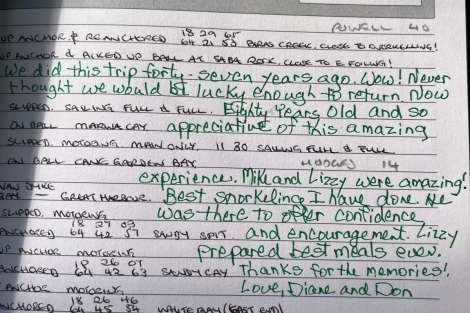 POWELL 40
18 29 65
UP ANCHOR & REANCHORED 64 21 53 BARAS CREEK, CLOSE TO
UP ANCHOR & PICKED UP BALL AT SABA ROCK, CLOSE TO
We did this trip forty-seven years ago. Wow! Never
thought we would be lucky enough to return. Now
SLIPPED, SAILING FULL & FULL. Eighty Years Old and so
ON BALL MARINA CAY appreciative of this amazing
SLIPPED, MOTORING MAIN ONLY. 11 30 SAILING FULL & FULL
ON BALL CANE GARDEN BAY 14
experience. Mike and Lizzy were amazing!
GREAT HARBOUR. Best snorkeling I have done. He
SLIPPED, MOTORING was there to offer confidence
18 27 03
ANCHORED 64 42 57 SANDY SPIT and encouragement. Lizzy
UP ANCHOR MOTORING prepared best meals ever.
26 01
ANCHORED 64 42 63 SANDY CAY Thanks for the memories!
ANCHOR MOTORING Love, Diane and Don
18 26 46
ANCHORED 64 45 54 WHITE BAY (EAST END)